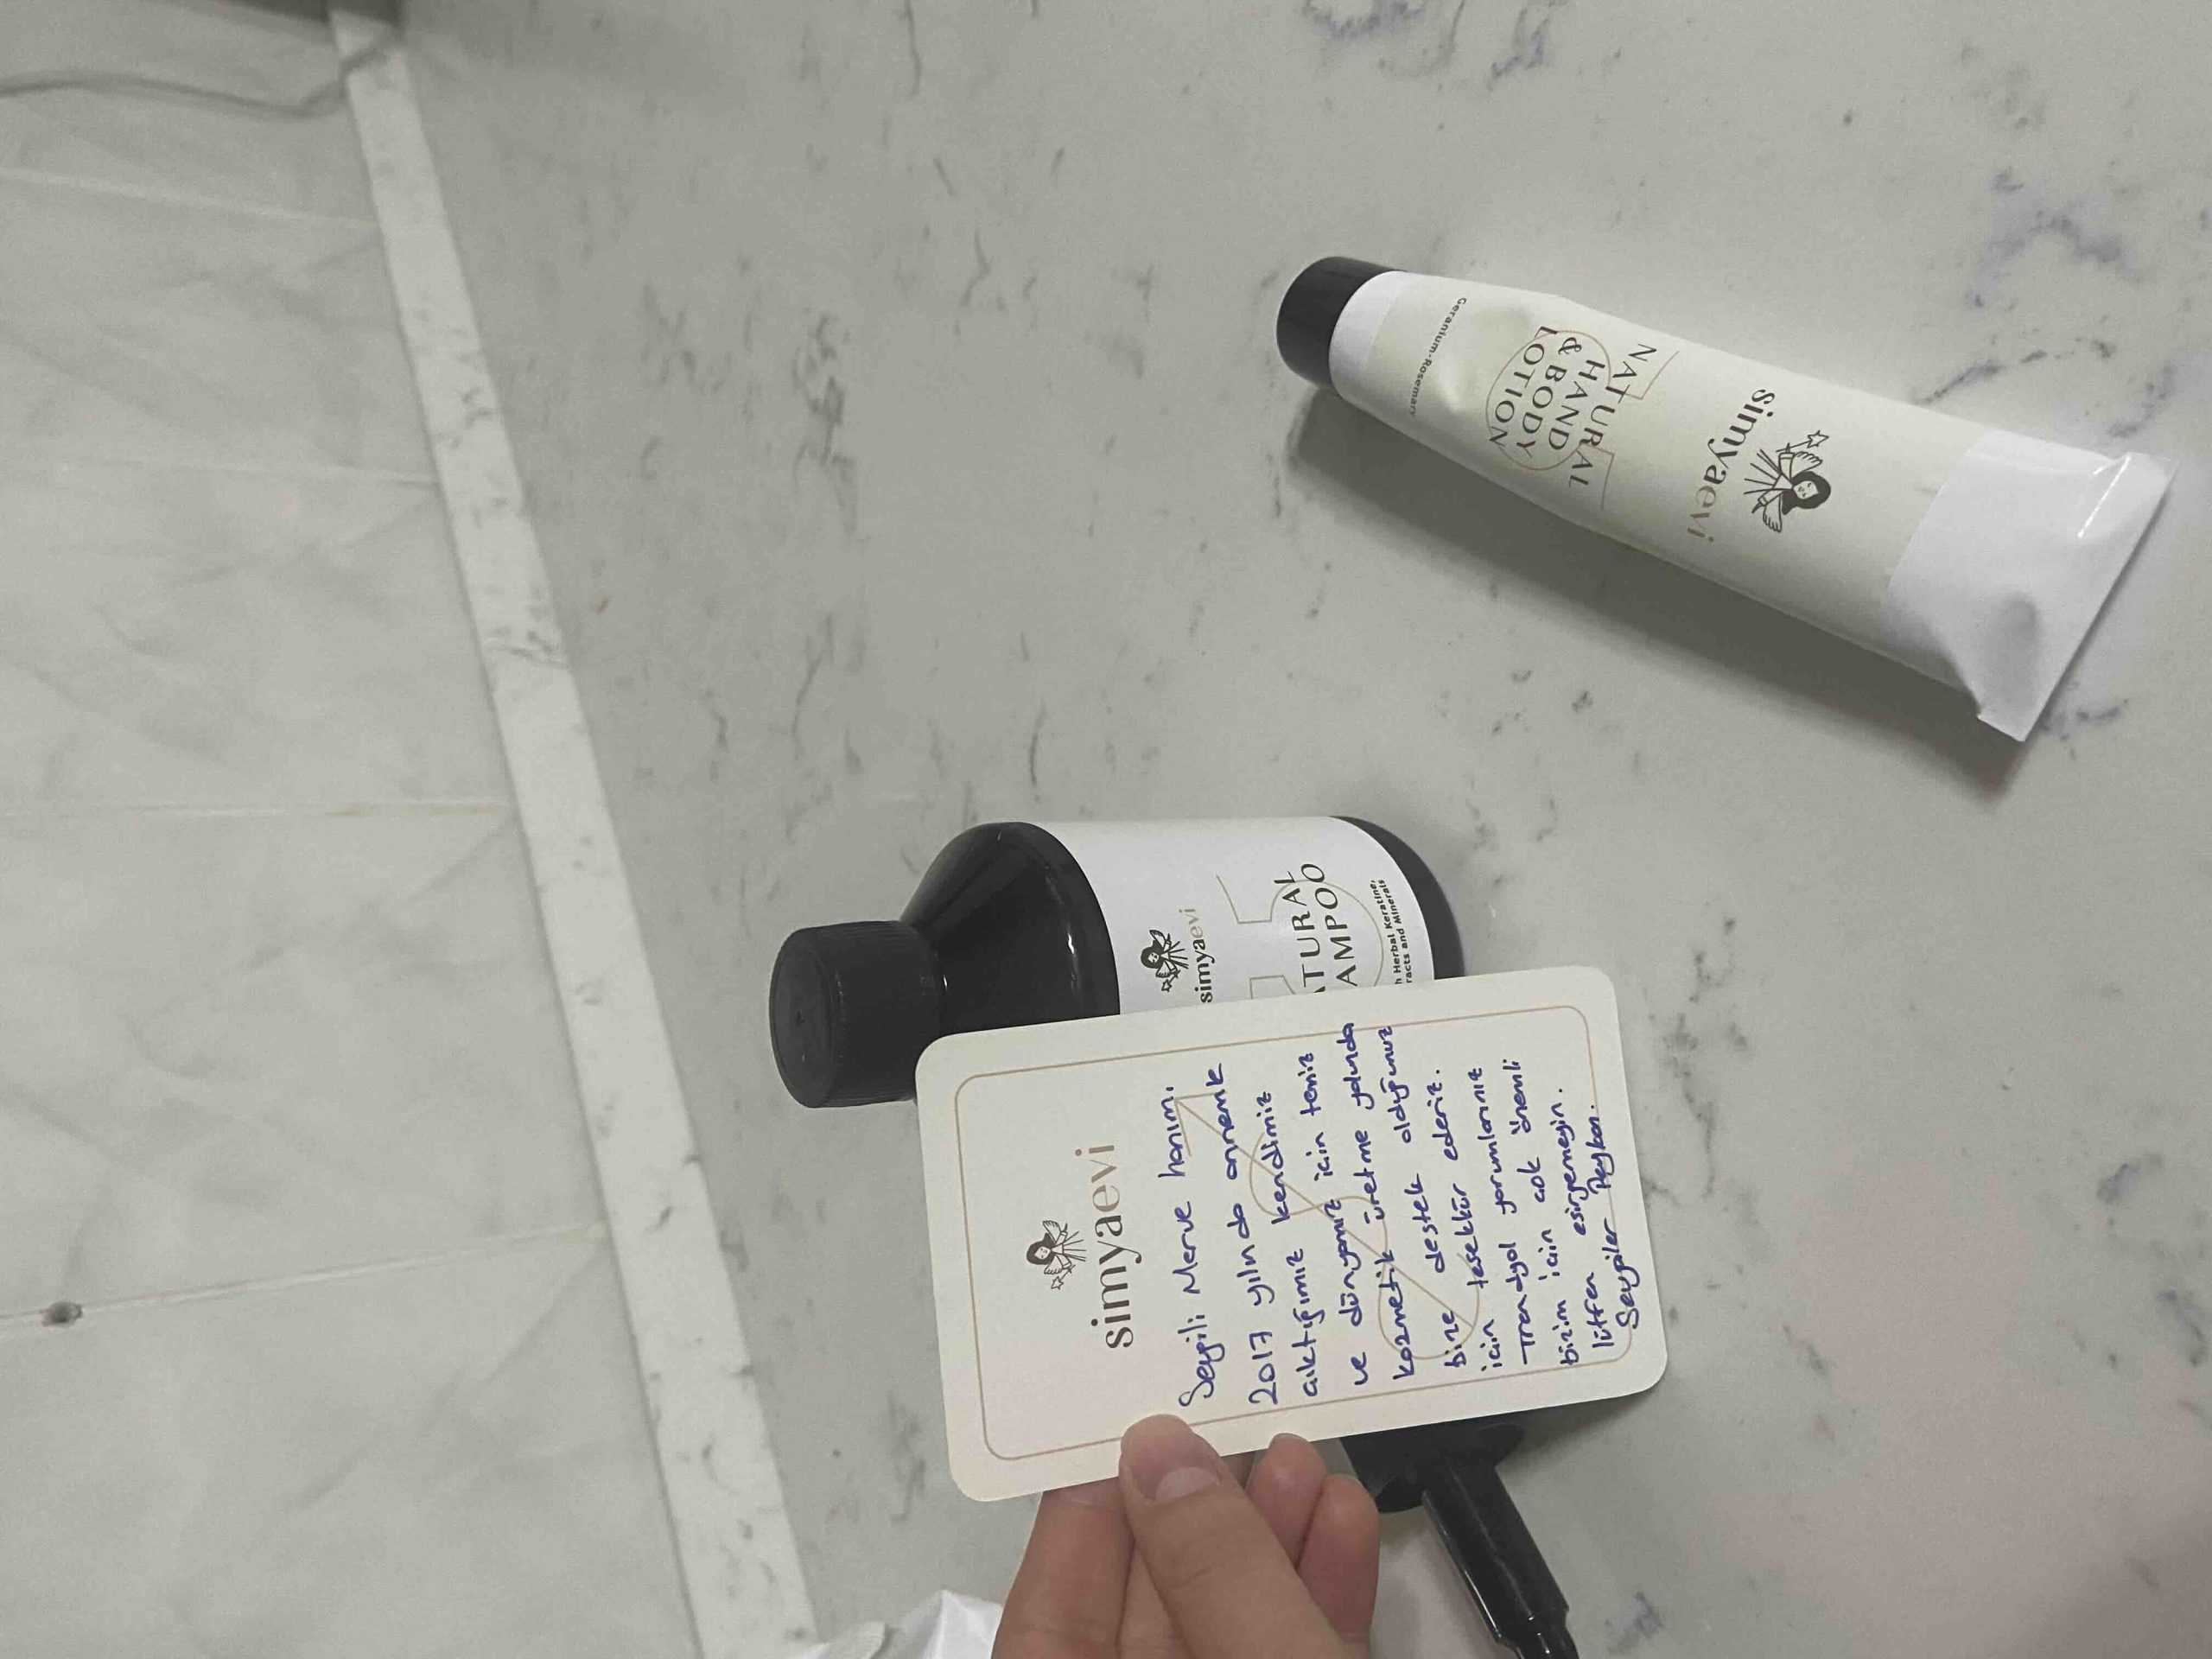 simyaevi
NATURAL
HAND
& BODY
LOTION
Geranium-Rosemary
simyaevi
ATURAL
AMPOO
h Herbal Keratine,
racts and Minerals
simyaevi
Sevgili Merve hanım.
2017 yılında annemle
çıktığımız kendimiz
ve dünyamız için temiz
kozmetik üretme yolunda
bize destek olduğunuz
için teşekkür ederiz.
Trendyol yorumlarınız
bizim için çok önemli
lütfen esirgemeyin.
Sevgiler